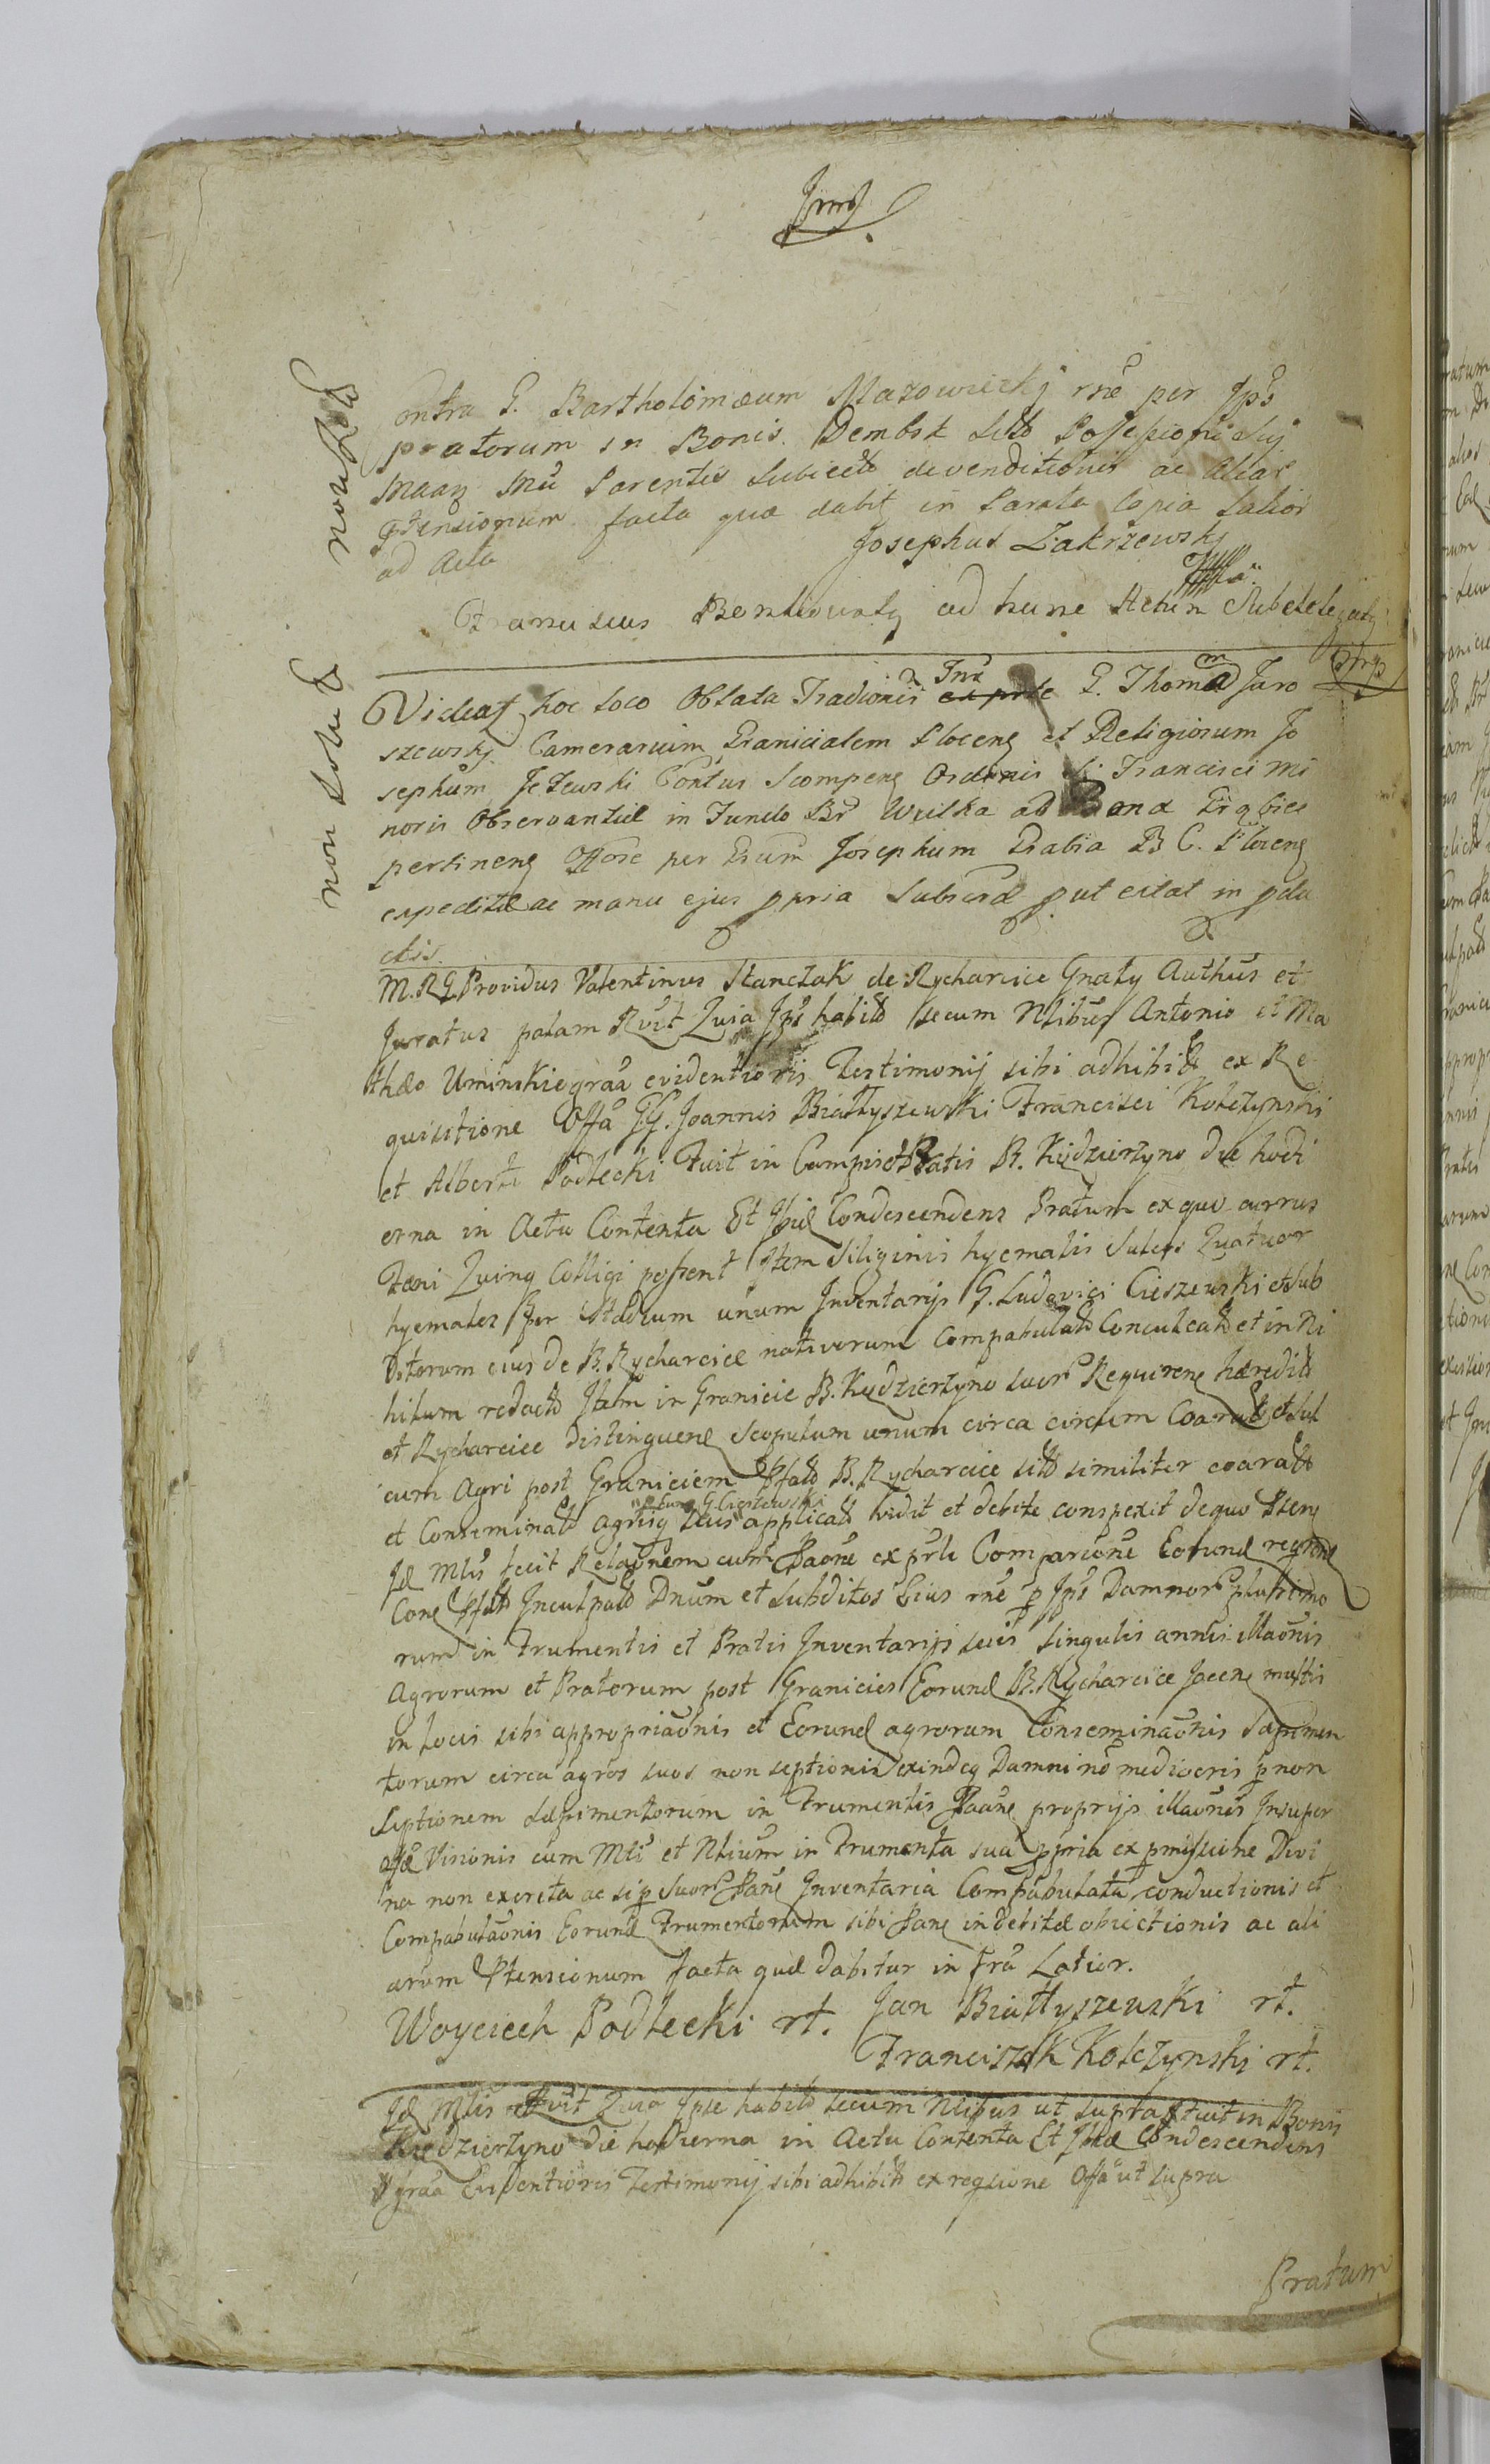 non Solut
non Solut
ontra G. Bartholomæum Mazowiecky rne per Jps
pratorum in Bonis Dembsk sito Possessionis sui
ptensionum facta quæ dabit in Parata Copia Latior
ad Acta
Josephus Zakrzewsky
ad hunc Actum Subdelegaty
Videat hoc loco Oblata Tradionis Int G. Thomam Jaro
szewsky Camerarium Granicialem Plocens et Religiosum Jo
sephum Jezewski Contus Scompens Ordinis S. Francisci Mi
noris Observantiæ in Fundo Br Wulka ad Bona
pertinens Offose per Gsum Josephum Grabia B C. Plocens
expeditæ ac manu ejus ppria Subscræ put citat in pdu
ctis.
M. R G Providus Valentinus Stanczak de Rycharcice Gnaty Authus et
Juratus palam Rvit Quia Jps habito secum Nlibus Antonio et Ma
thæo Uminskie graa evidentioris Testimonij sibi adhibit ex Re
quisitione Offa G.G. Joannis Białłyszewski Francisci Kolczynski
et Alberti Podlecki Fuit in Campis et Pratis B. Kędzierzyno die hodi
erna in Actu Contenta Et Ibid Condescendens Pratum ex quo currus
Fæni Quinq Colligi possent Item Siliginis hyemalis Sulcos Quatuor
hyemales per Stadium unum Inventarijs G. Ludovici Cieszewski et Sub
ditorum eius de B. Rycharcice nativorum Compabulato Conculcato et in Ni
hilum redacto Item in Granicie B. Kędzierzyno suor Requirens hæredit
et Rycharcice distinguens Scopulum unum circa circum Coarato et Sul
cum Agri post Graniciem Pfato B. Rycharcice sito similiter coarato
p Eum G. Cieszewski
et Conseminato agrisq suis applicato vidit et debite conspexit de quo Prens
Id Mlis fecit Relaonem cum Paone ex prti Comparione Eorund reqrene
Cone Pfato Inculpato Dnum et Subditos Eius rne p Jps Damnor plurimo
rum in Frumentis et Pratis Inventarijs suis singulis annis illaonis
Agrorum et Pratorum post Granicies Eorund B. Rycharcice Jacens multis
in locis sibi appropriaonis et Eorund agrorum Conseminaonis Sapimen
torum circa agros suos non septionis exindeq Damni no mediocris p non
Septionem sæpimentorum in Frumentis Paone proprijs illaonis Insuper
Visionis cum Mli et Nlium in Frumenta sua ppria ex pmissione Divi
na non excreta ac si p Suor Pane Inventaria Compabulata conductionis et
Compabulaonis Eorund Frumentorum sibi Pane indebitæ obiectionis ac ali
arum Ptensionum facta quæ dabitur in Fra Latior.
Woyciech Podlecki rt. Jan Białłyszewski rt.
Franciszek Kolczynski rt.
Id Mlis Rvit Quia Ipse habito secum Nlibus ut supra Fuit in Bonis
Kędzierzyno die hodierna in Actu Contenta Et Ibid Condescendens
graa Evidentioris Testimonij sibi adhibit ex reqsione Offa ut supra
Pratum